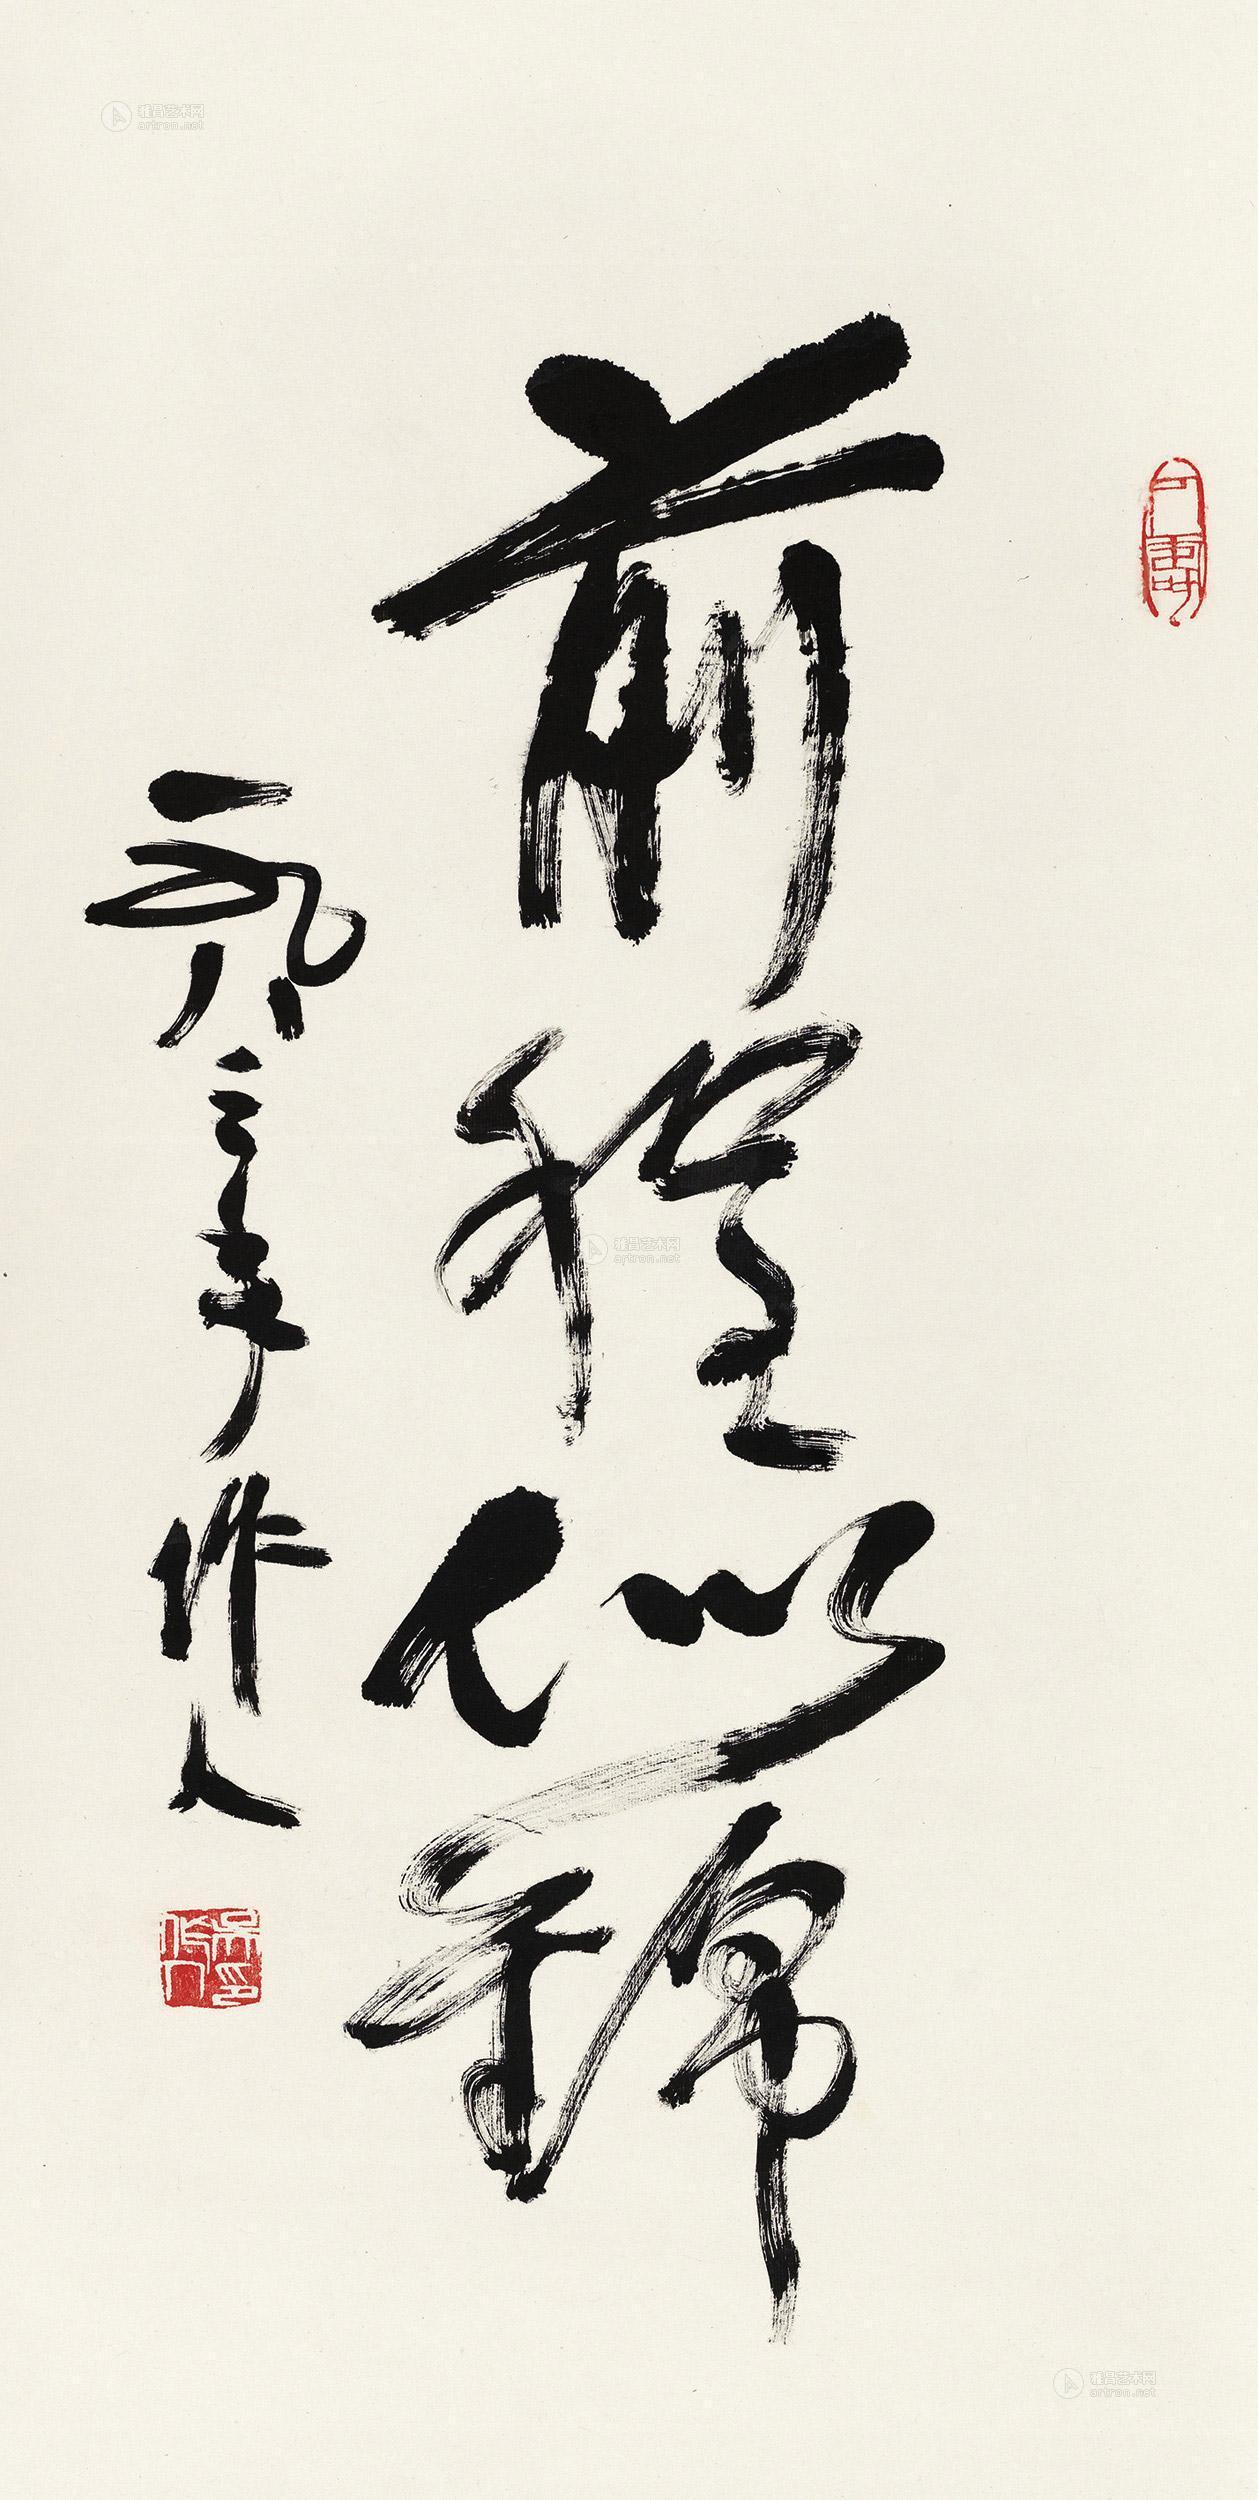 前程似錦
一九八三年
作人
吴作人印
雅昌艺术网
artron.net
雅昌艺术网
artron.net
雅昌艺术网
artron.net